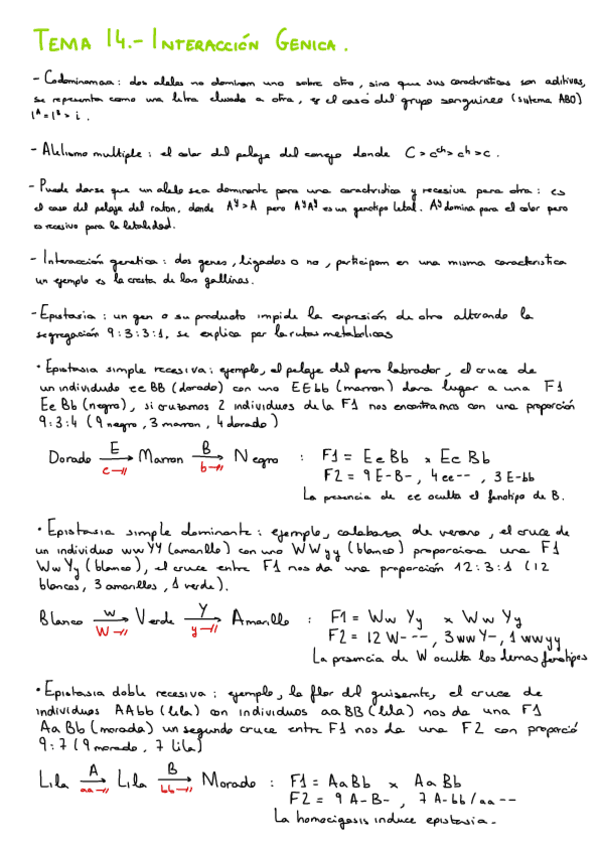 TEMA 14.- INTERACCIÓN GENICA.
- Codominancia: dos alelos no dominan uno sobre otro, sino que sus características son aditivas,
se representa como una letra elevada a otra, es el caso del grupo sanguineo (sistema ABO)
Iᴬ = Iᴮ > i.
- Alelismo multiple: el color del pelaje del conejo donde C > cᶜʰ > cʰ > c.
- Puede darse que un alelo sea dominante para una caracteristica y recesiva para otra: es
el caso del pelaje del raton, donde Aʸ > A pero AʸAʸ es un genotipo letal. Aʸ domina para el color pero
es recesivo para la letalidad.
- Interacción genetica: dos genes, ligados o no, participan en una misma caracteristica
un ejemplo es la cresta de las gallinas.
- Epistasia: un gen o su producto impide la expresión de otro alterando la
segregación 9:3:3:1, se explica por las rutas metabolicas
• Epistasia simple recesiva: ejemplo, el pelaje del perro labrador, el cruce de
un individuo eeBB (dorado) con uno EEbb (marron) dara lugar a una F1
EeBb (negro), si cruzamos 2 individuos de la F1 nos encontramos con una proporción
9:3:4 (9 negro, 3 marron, 4 dorado)
Dorado E→ Marron B→ Negro : F1 = EeBb x EeBb
e→// b→// F2 = 9 E-B-, 4 ee--, 3 E-bb
La presencia de ee oculta el fenotipo de B.
• Epistasia simple dominante: ejemplo, calabaza de verano, el cruce de
un individuo wwYY (amarillo) con uno WWyy (blanco) proporciona una F1
WwYy (blanco), el cruce entre F1 nos da una proporción 12:3:1 (12
blancos, 3 amarillos, 1 verde).
Blanco w→ Verde Y→ Amarillo : F1 = Ww Yy x Ww Yy
W→// y→// F2 = 12 W---, 3 wwY-, 1 wwyy
La presencia de W oculta los demas fenotipos
• Epistasia doble recesiva: ejemplo, la flor del guisante, el cruce de
individuos AAbb (lila) con individuos aaBB (lila) nos da una F1
AaBb (morada) un segundo cruce entre F1 nos da una F2 con proporció
9:7 (9 morado, 7 lila)
Lila A→ Lila B→ Morado : F1 = AaBb x AaBb
aa→// bb→// F2 = 9 A-B-, 7 A-bb/aa--
La homocigosis induce epistasia.